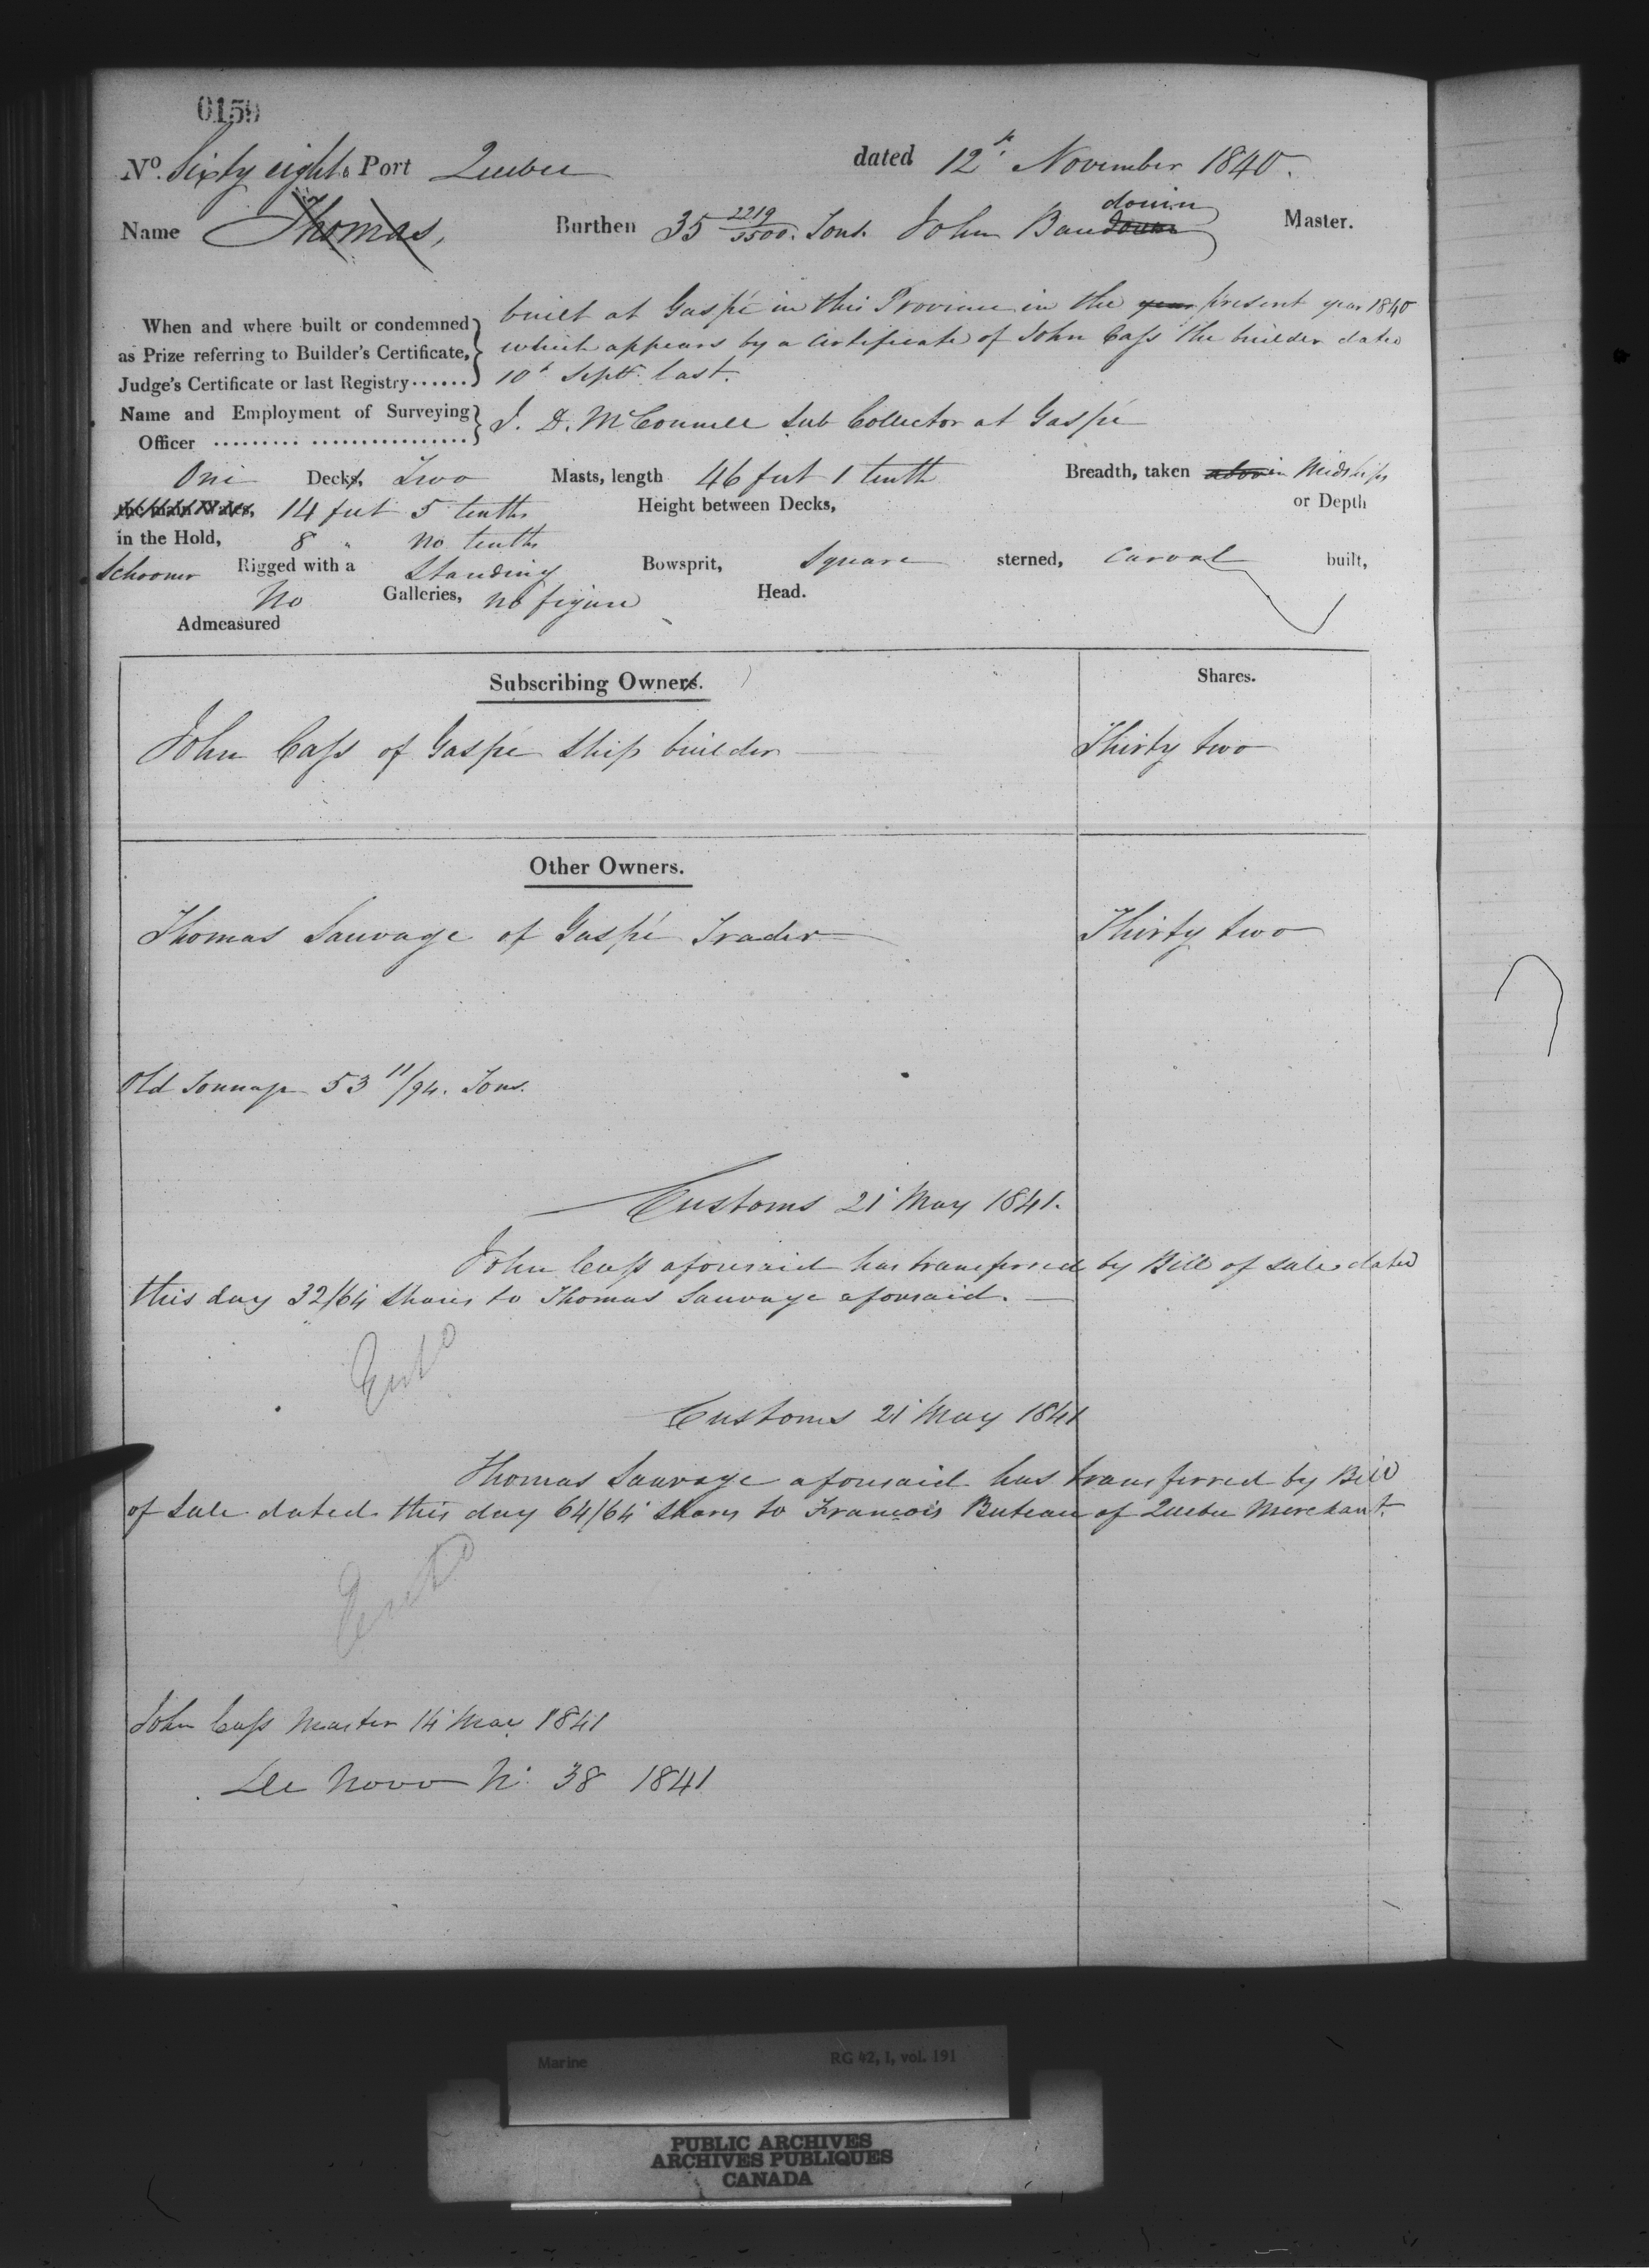 0159
No. Sixty eight Port Quebec dated 12th November 1840.
Name Thomas, Burthen 35 2219/3500 Tons. John Baudouin Master.
When and where built or condemned built at Gaspé in this Province in the year present year 1840
as Prize referring to Builder's Certificate, which appears by a Certificate of John Cass the builder dated
Judge's Certificate or last Registry...... 10th Septr. last.
Name and Employment of Surveying
Officer ......... ................ J. D. McConnell Sub Collector at Gaspé
One Decks, Two Masts, length 46 feet 1 tenth Breadth, taken above in Midships
the main Wales, 14 feet 5 tenths Height between Decks, or Depth
in the Hold, 8 " no tenths
Schooner Rigged with a Standing Bowsprit, Square sterned, Carval built,
No Galleries, no figure Head.
Admeasured
Subscribing Owners. Shares.
John Cass of Gaspé Ship builder Thirty two
Other Owners.
Thomas Sauvage of Gaspé Trader Thirty two
Old Tonnage 53 11/94. Tons.
Customs 21 May 1841.
John Cass aforesaid has transferred by Bill of Sale dated
this day 32/64 Shares to Thomas Sauvage aforesaid.
Entd
Customs 21 May 1841
Thomas Sauvage aforesaid has transferred by Bill
of Sale dated this day 64/64 Shares to François Buteau of Quebec Merchant.
Entd
John Cass Master 14 May 1841
De Novo No. 38 1841
Marine RG 42, I, vol. 191
PUBLIC ARCHIVES
ARCHIVES PUBLIQUES
CANADA